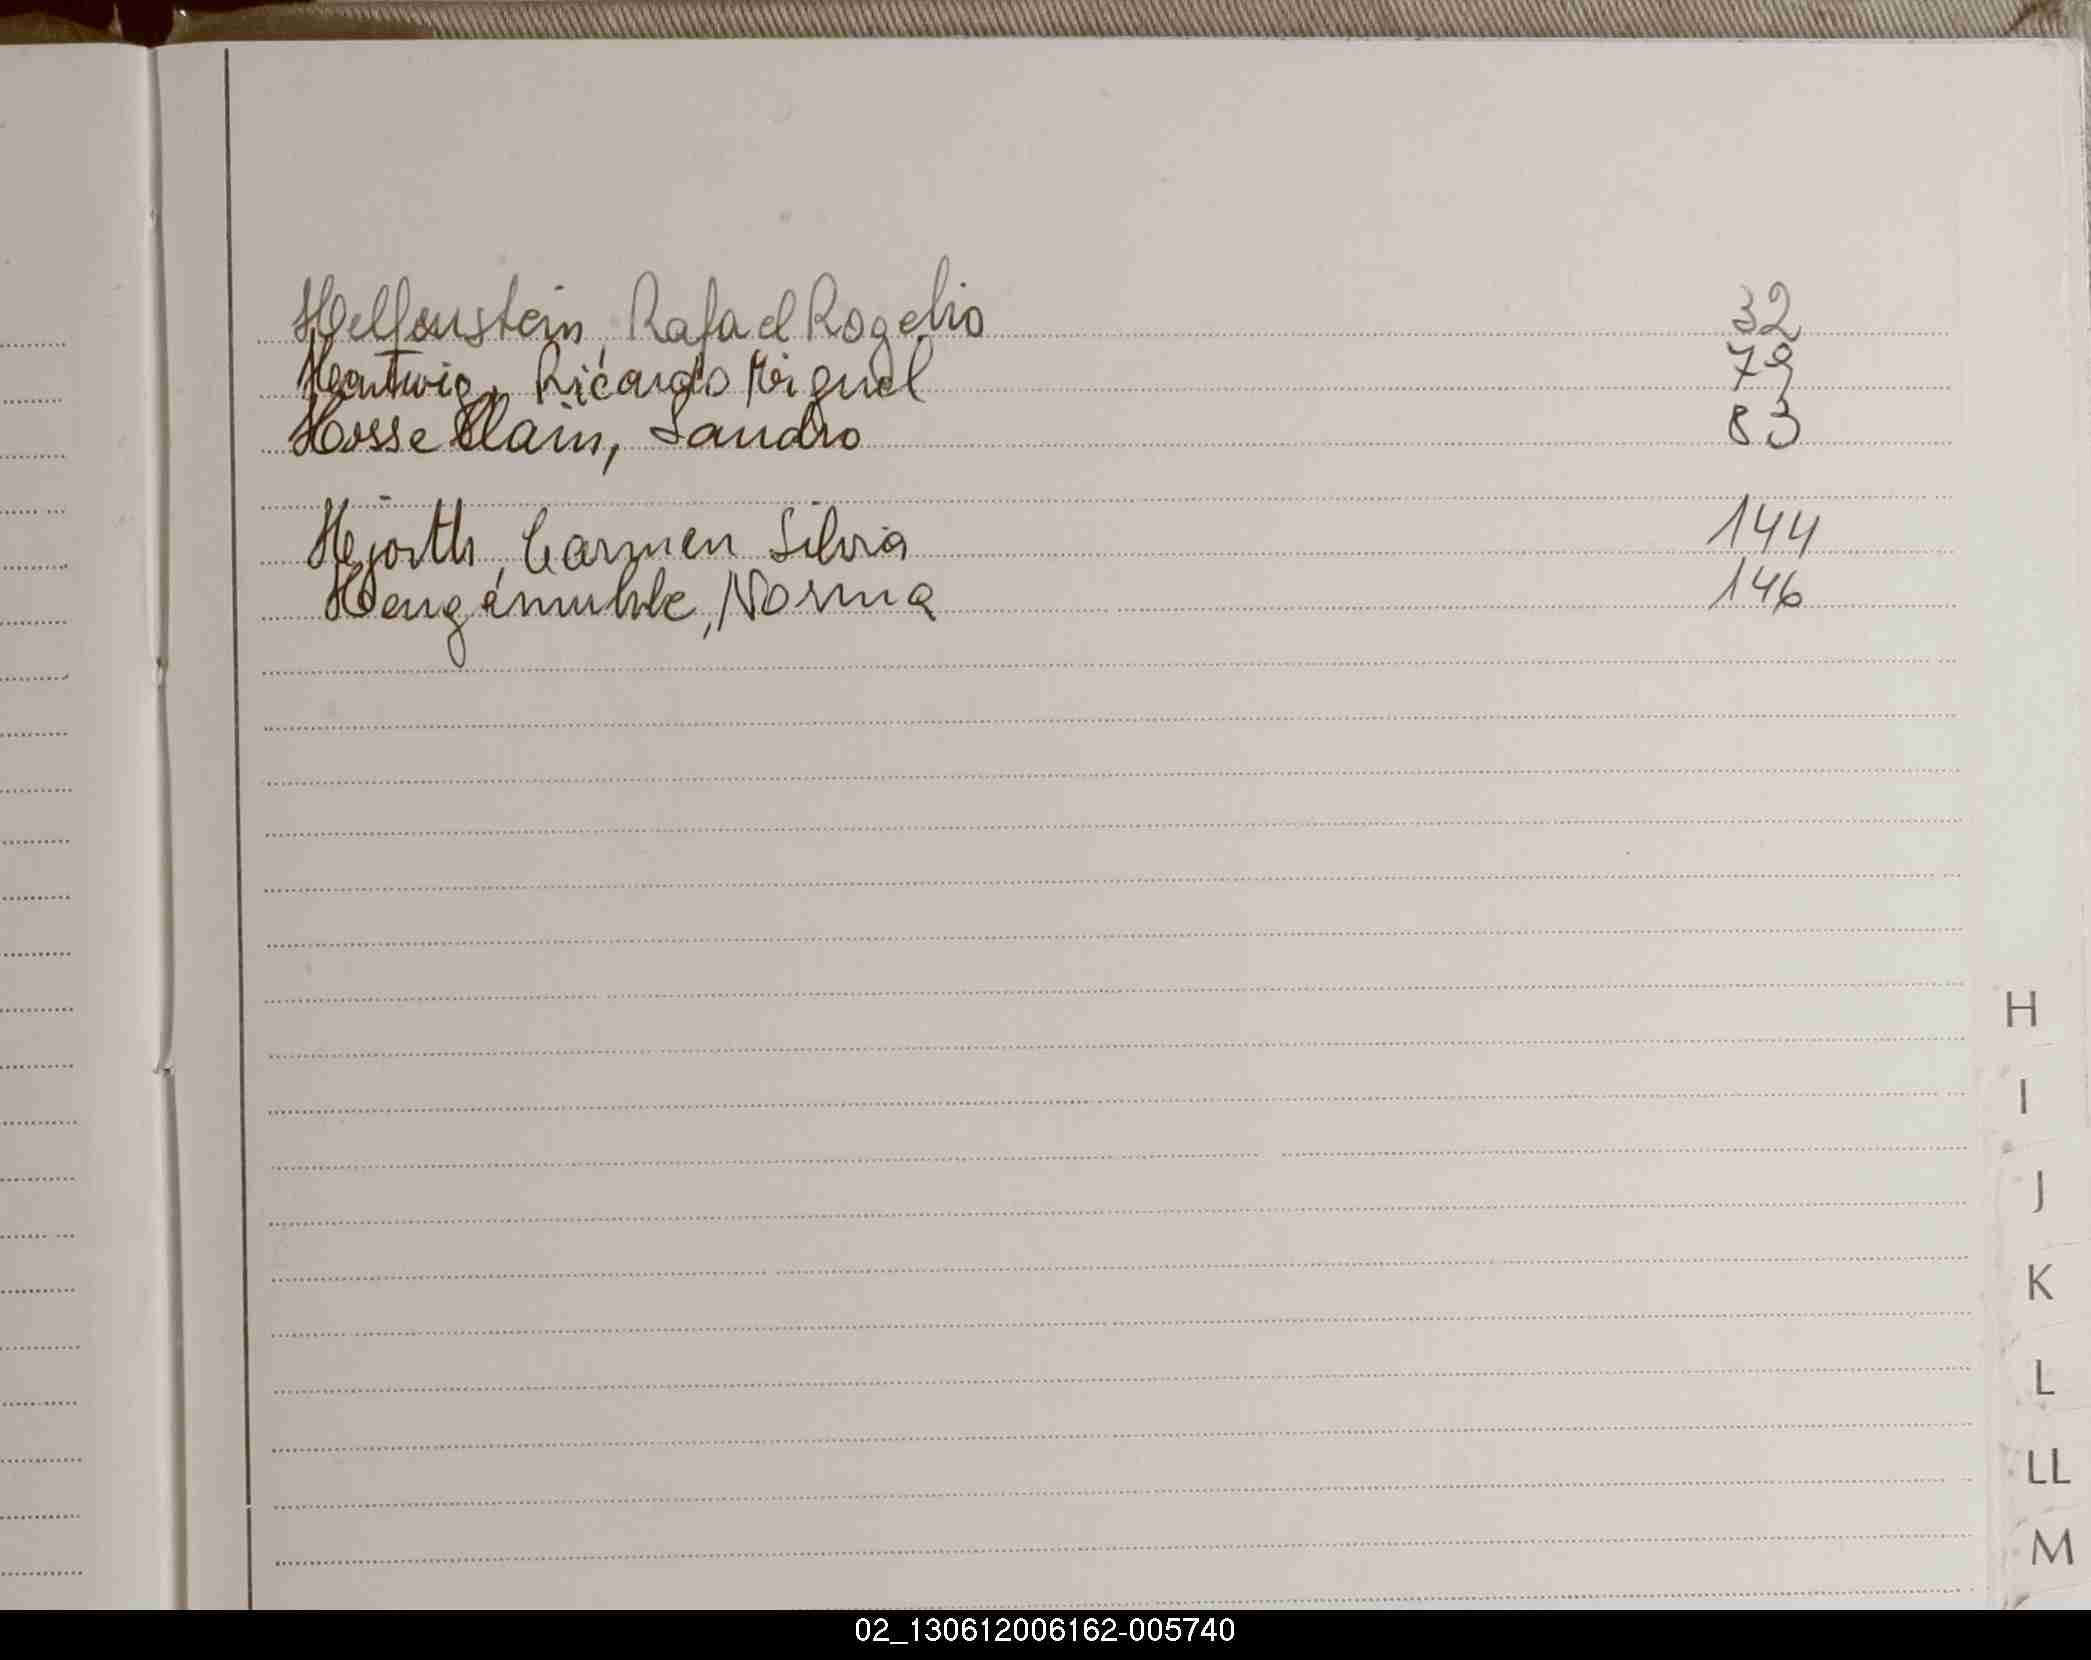 Helfenstein, Rafael Rogelio 32
Hartwig, Ricardo Miguel 79
Hosse Clain, Sandro 83
Hjorth, Carmen Silvia 144
Hengemuhle, Norma 146
H
I
J
K
L
LL
M
02_130612006162-005740